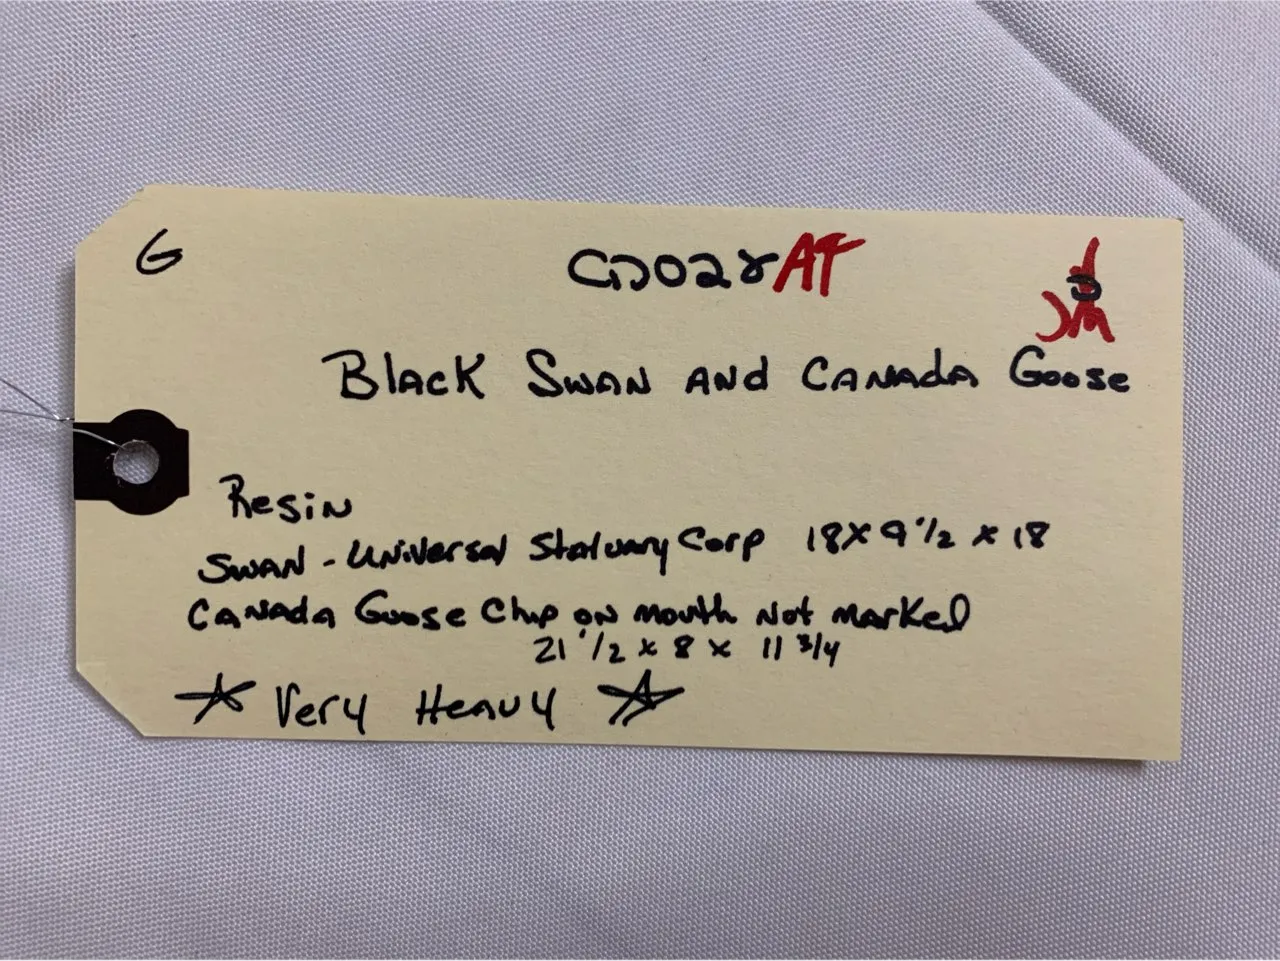 G
CJ028AT
JM
Black Swan and Canada Goose
Resin
Swan - Universal Statuary Corp 18 x 9 1/2 x 18
Canada Goose Chip on mouth Not marked
21 1/2 x 8 x 11 3/4
☆ Very Heavy ☆